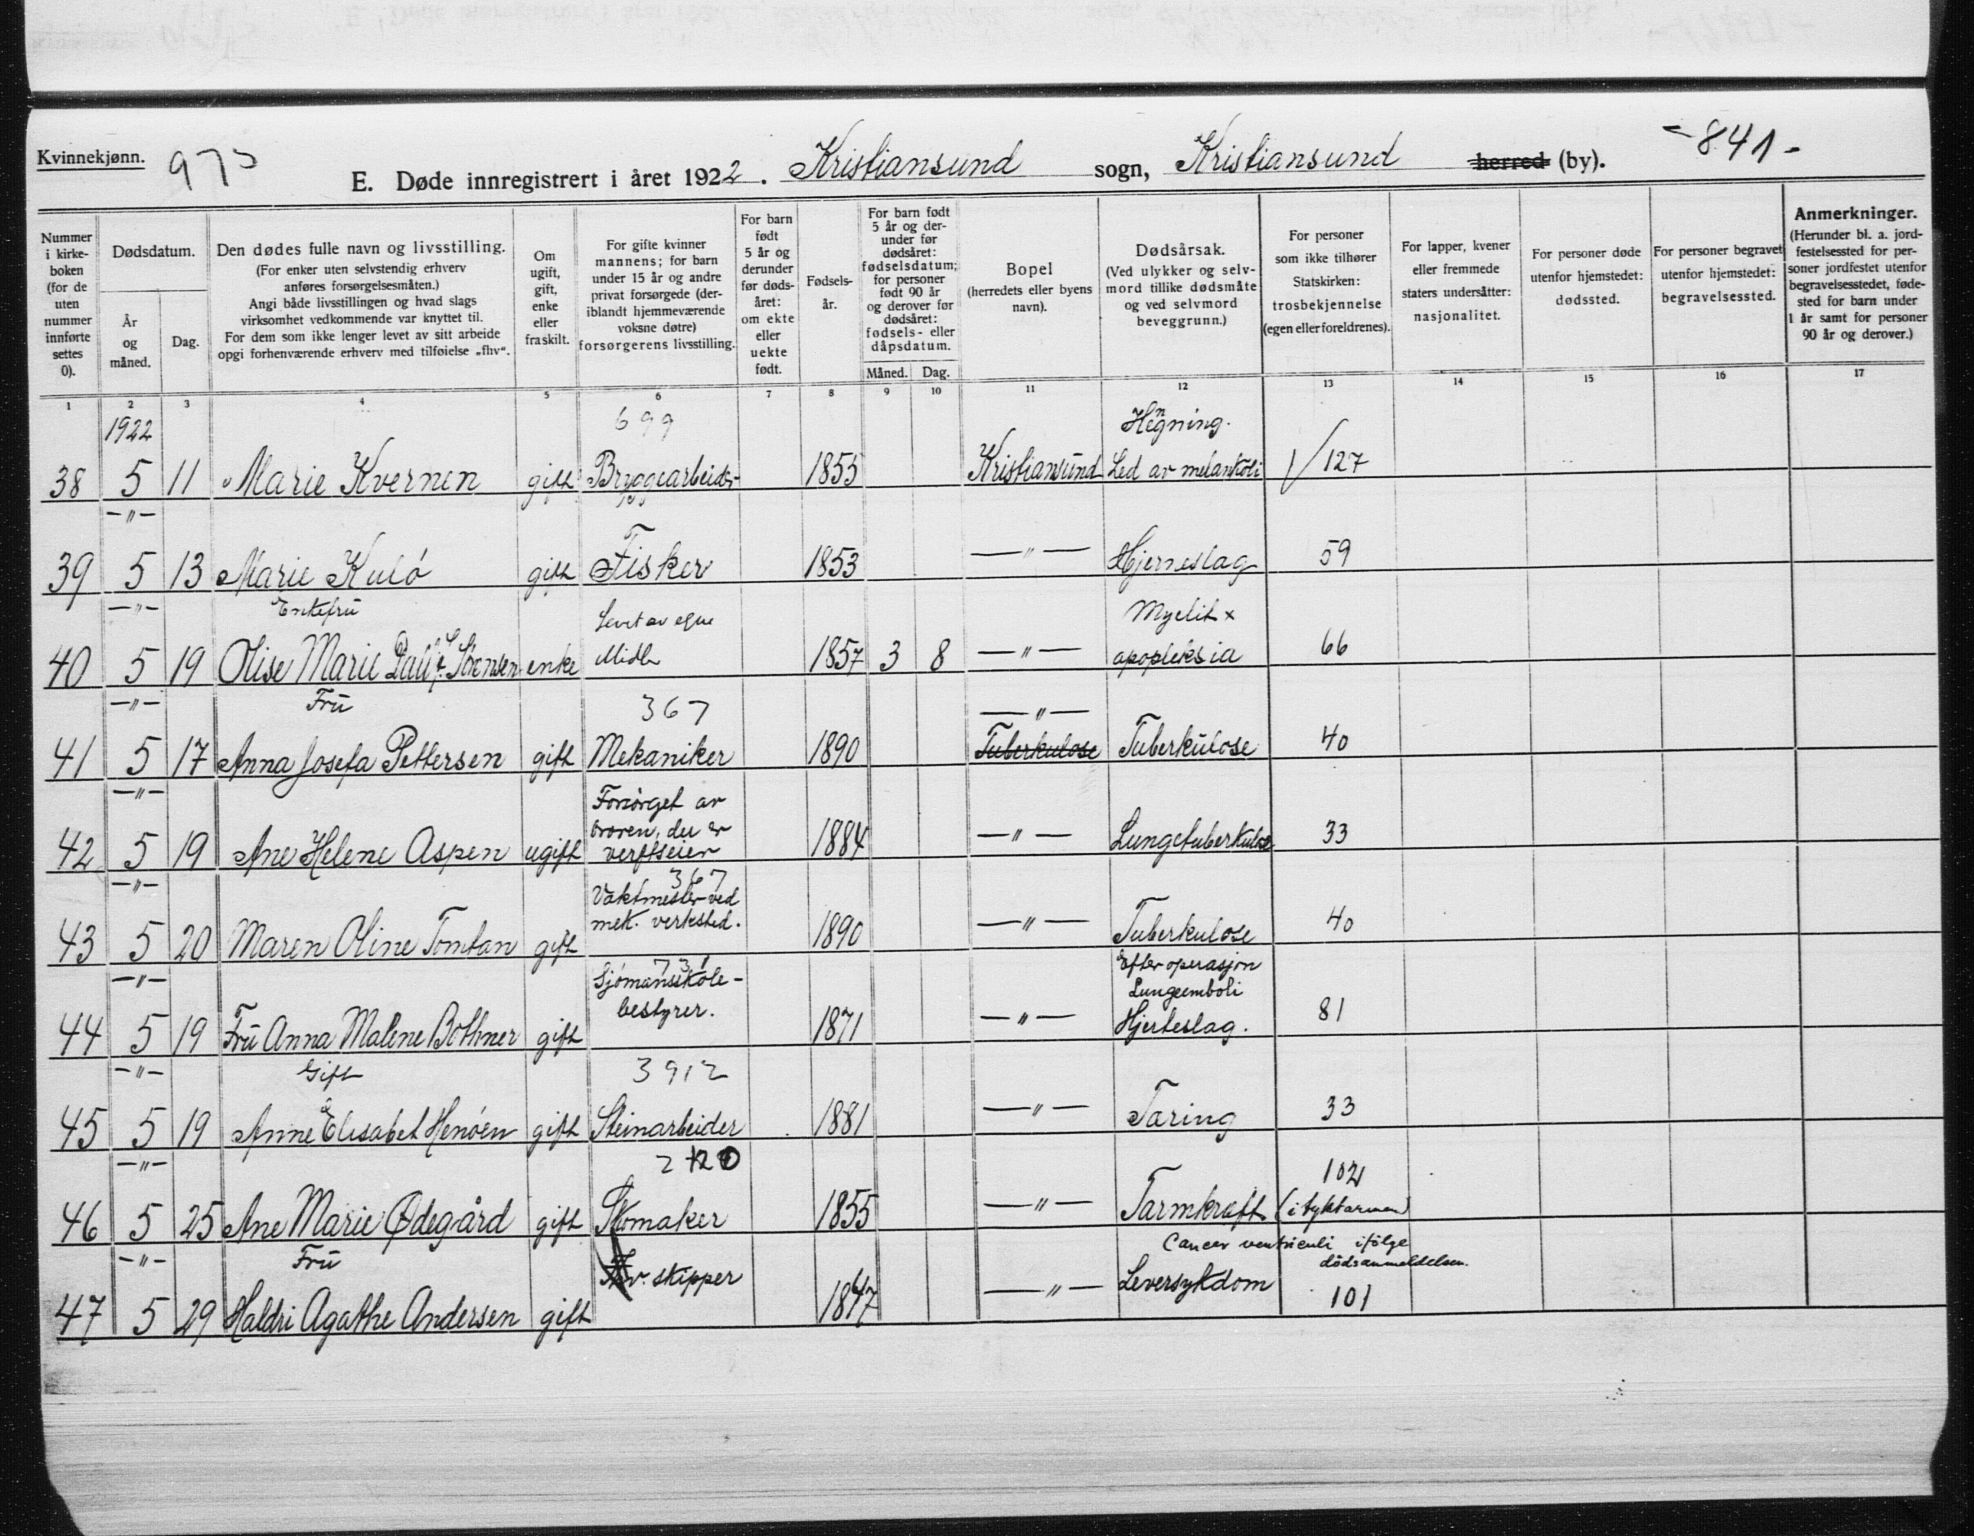 Kvinnekjønn.
975
-841-
E. Døde innregistrert i året 1922. Kristiansund sogn, Kristiansund herred (by).
Nummer i kirke-boken (for de uten nummer innførte settes 0).
Dødsdatum.
År og måned.
Dag.
Den dødes fulle navn og livsstilling.
(For enker uten selvstendig erhverv anføres forsørgelsesmåten.)
Angi både livsstillingen og hvad slags virksomhet vedkommende var knyttet til.
For dem som ikke lenger levet av sitt arbeide opgi forhenværende erhverv med tilføielse „fhv“.
Om ugift, gift, enke eller fraskilt.
For gifte kvinner mannens; for barn under 15 år og andre privat forsørgede (der-iblandt hjemmeværende voksne døtre) forsørgerens livsstilling.
For barn født 5 år og derunder før døds-året: om ekte eller uekte født.
Fødsels-år.
For barn født 5 år og der-under før dødsåret: fødselsdatum; for personer født 90 år og derover før dødsåret: fødsels- eller dåpsdatum.
Måned.
Dag.
Bopel
(herredets eller byens navn).
Dødsårsak.
(Ved ulykker og selv-mord tillike dødsmåte og ved selvmord beveggrunn.)
For personer som ikke tilhører Statskirken: trosbekjennelse (egen eller foreldrenes).
For lapper, kvener eller fremmede staters undersåtter: nasjonalitet.
For personer døde utenfor hjemstedet: dødssted.
For personer begravet utenfor hjemstedet: begravelsessted.
Anmerkninger.
(Herunder bl. a. jord-festelsessted for per-soner jordfestet utenfor begravelsesstedet, føde-sted for barn under 1 år samt for personer 90 år og derover.)
1 2 3 4 5 6 7 8 9 10 11 12 13 14 15 16 17
1922 699 Hengning.
38 5 11 Marie Kvernen gift Bryggearbeider 1855 Kristiansund Led av melankoli 127
—"—
39 5 13 Marie Kulø gift Fisker 1853 —"— Hjerneslag 59
—"— Enkefru Levet av egne Myelit +
40 5 19 Olise Marie Sørensen enke Midler 1857 3 8 —"— apopleksia 66
—"— Fru 367 —"—
41 5 17 Anna Josefa Pettersen gift Mekaniker 1890 Tuberkulose Tuberkulose 40
—"— Forsørget av
broren, der er
42 5 19 Ane Helene Aspen ugift verftseier 1884 —"— Lungetuberkulose 33
—"— 367
Vaktmester ved
mek. verksted.
43 5 20 Maren Oline Tomtan gift 1890 —"— Tuberkulose 40
—"— 731 Efter operasjon
Sjømansskole- Lungeemboli
bestyrer.
44 5 19 Fru Anna Malene Bothner gift 1871 —"— Hjerteslag. 81
—"— Gift 3912
45 5 19 Anne Elisabet Henøen gift Steinarbeider 1881 —"— Taring 33
—"— 102
46 5 25 Ane Marie Ødegård gift Skomaker 1855 —"— Tarmkreft (i tyktarmen)
—"— Fru Cancer ventriculi ifølge
dødsanmeldelsen.
Fhv. skipper
47 5 29 Haldri Agathe Andersen gift 1847 —"— Leversykdom 101